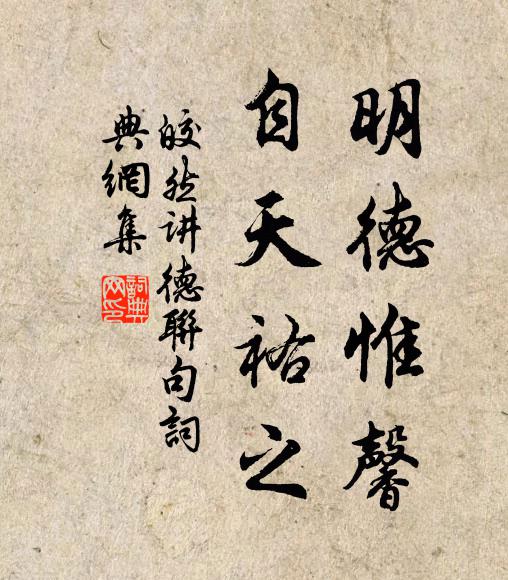 明德惟馨
自天祐之
皎然讲德聯句詞
典網集
詞典
网印